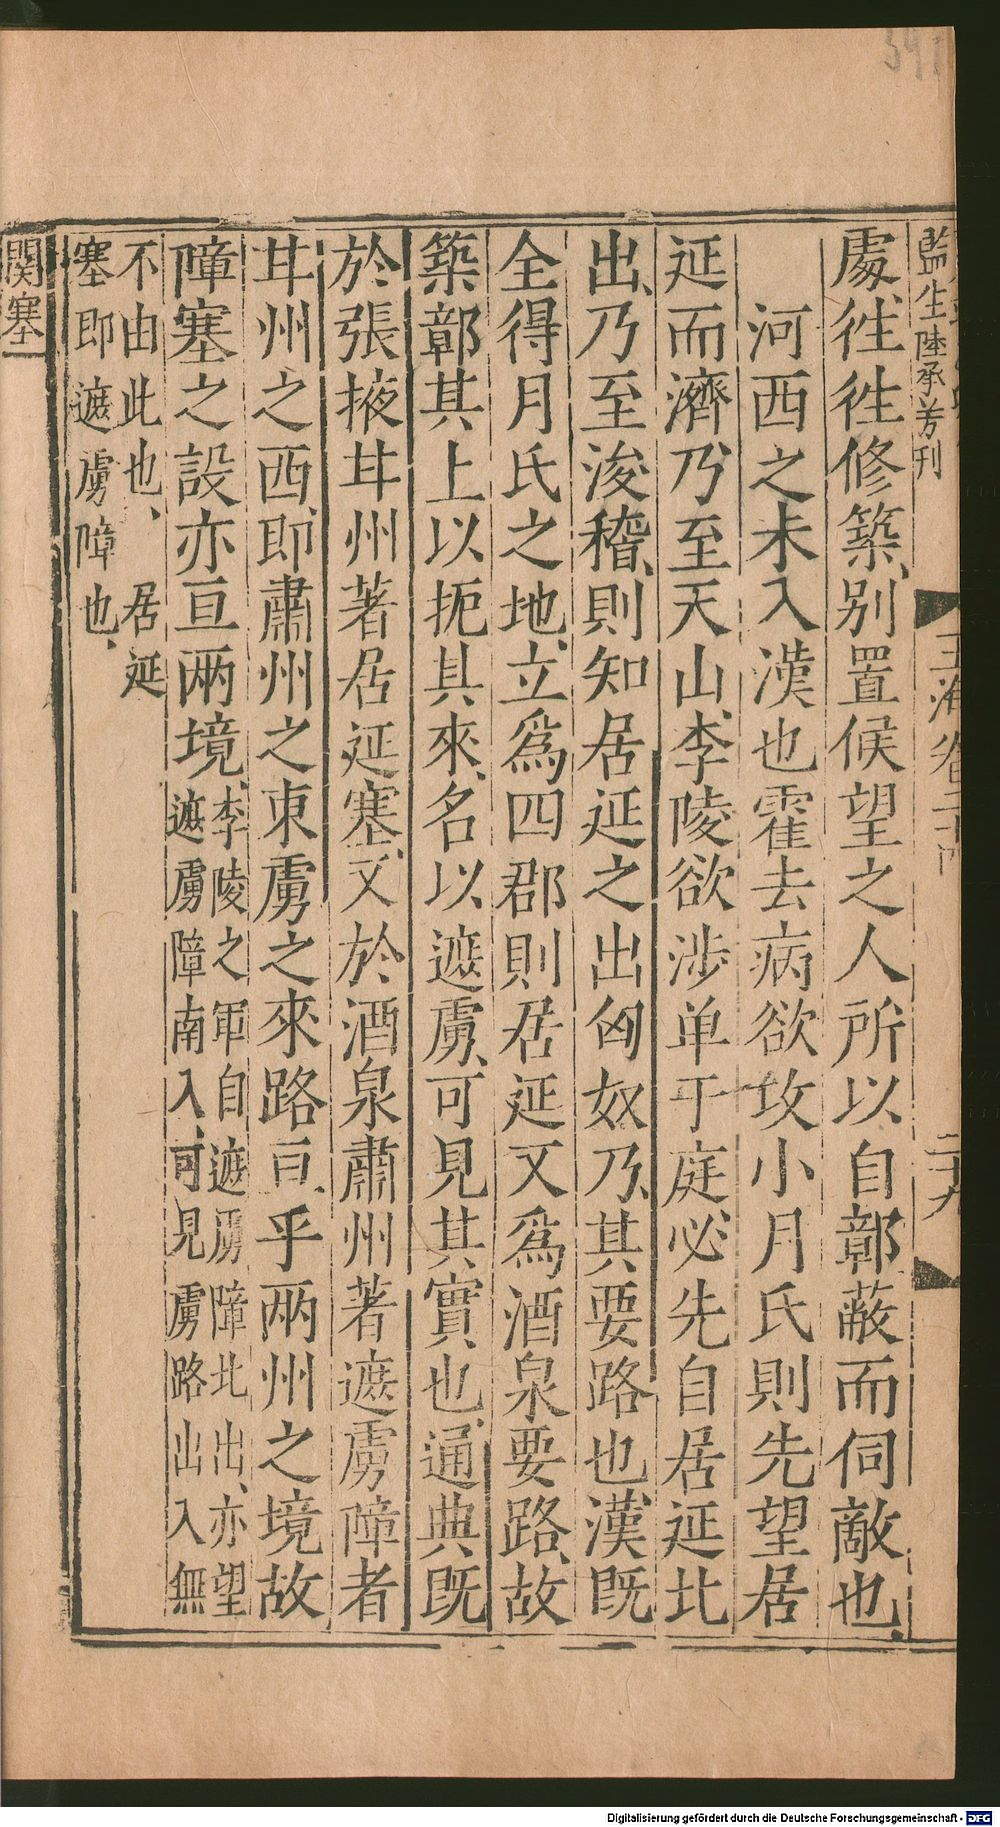 監生陸承芳刊
玉海卷二十四
二十九
處徃徃修築別置候望之人所以自鄣蔽而伺敵也
河西之未入漢也霍去病欲攻小月氏則先望居
延而濟乃至天山李陵欲涉单于庭必先自居延北
出乃至浚稽則知居延之出匈奴乃其要路也漢旣
全得月氏之地立爲四郡則居延又爲酒泉要路故
築鄣其上以扼其來名以遮虜可見其實也通典旣
於張掖甘州著居延塞又於酒泉肅州著遮虜障者
甘州之西即肅州之東虜之來路亘乎兩州之境故
障塞之設亦亘兩境李陵之軍自遮虜障北出亦望
遮虜障南入可見虜路出入無
不由此也 居延
塞即遮虜障也
関塞
391
Digitalisierung gefördert durch die Deutsche Forschungsgemeinschaft - DFG